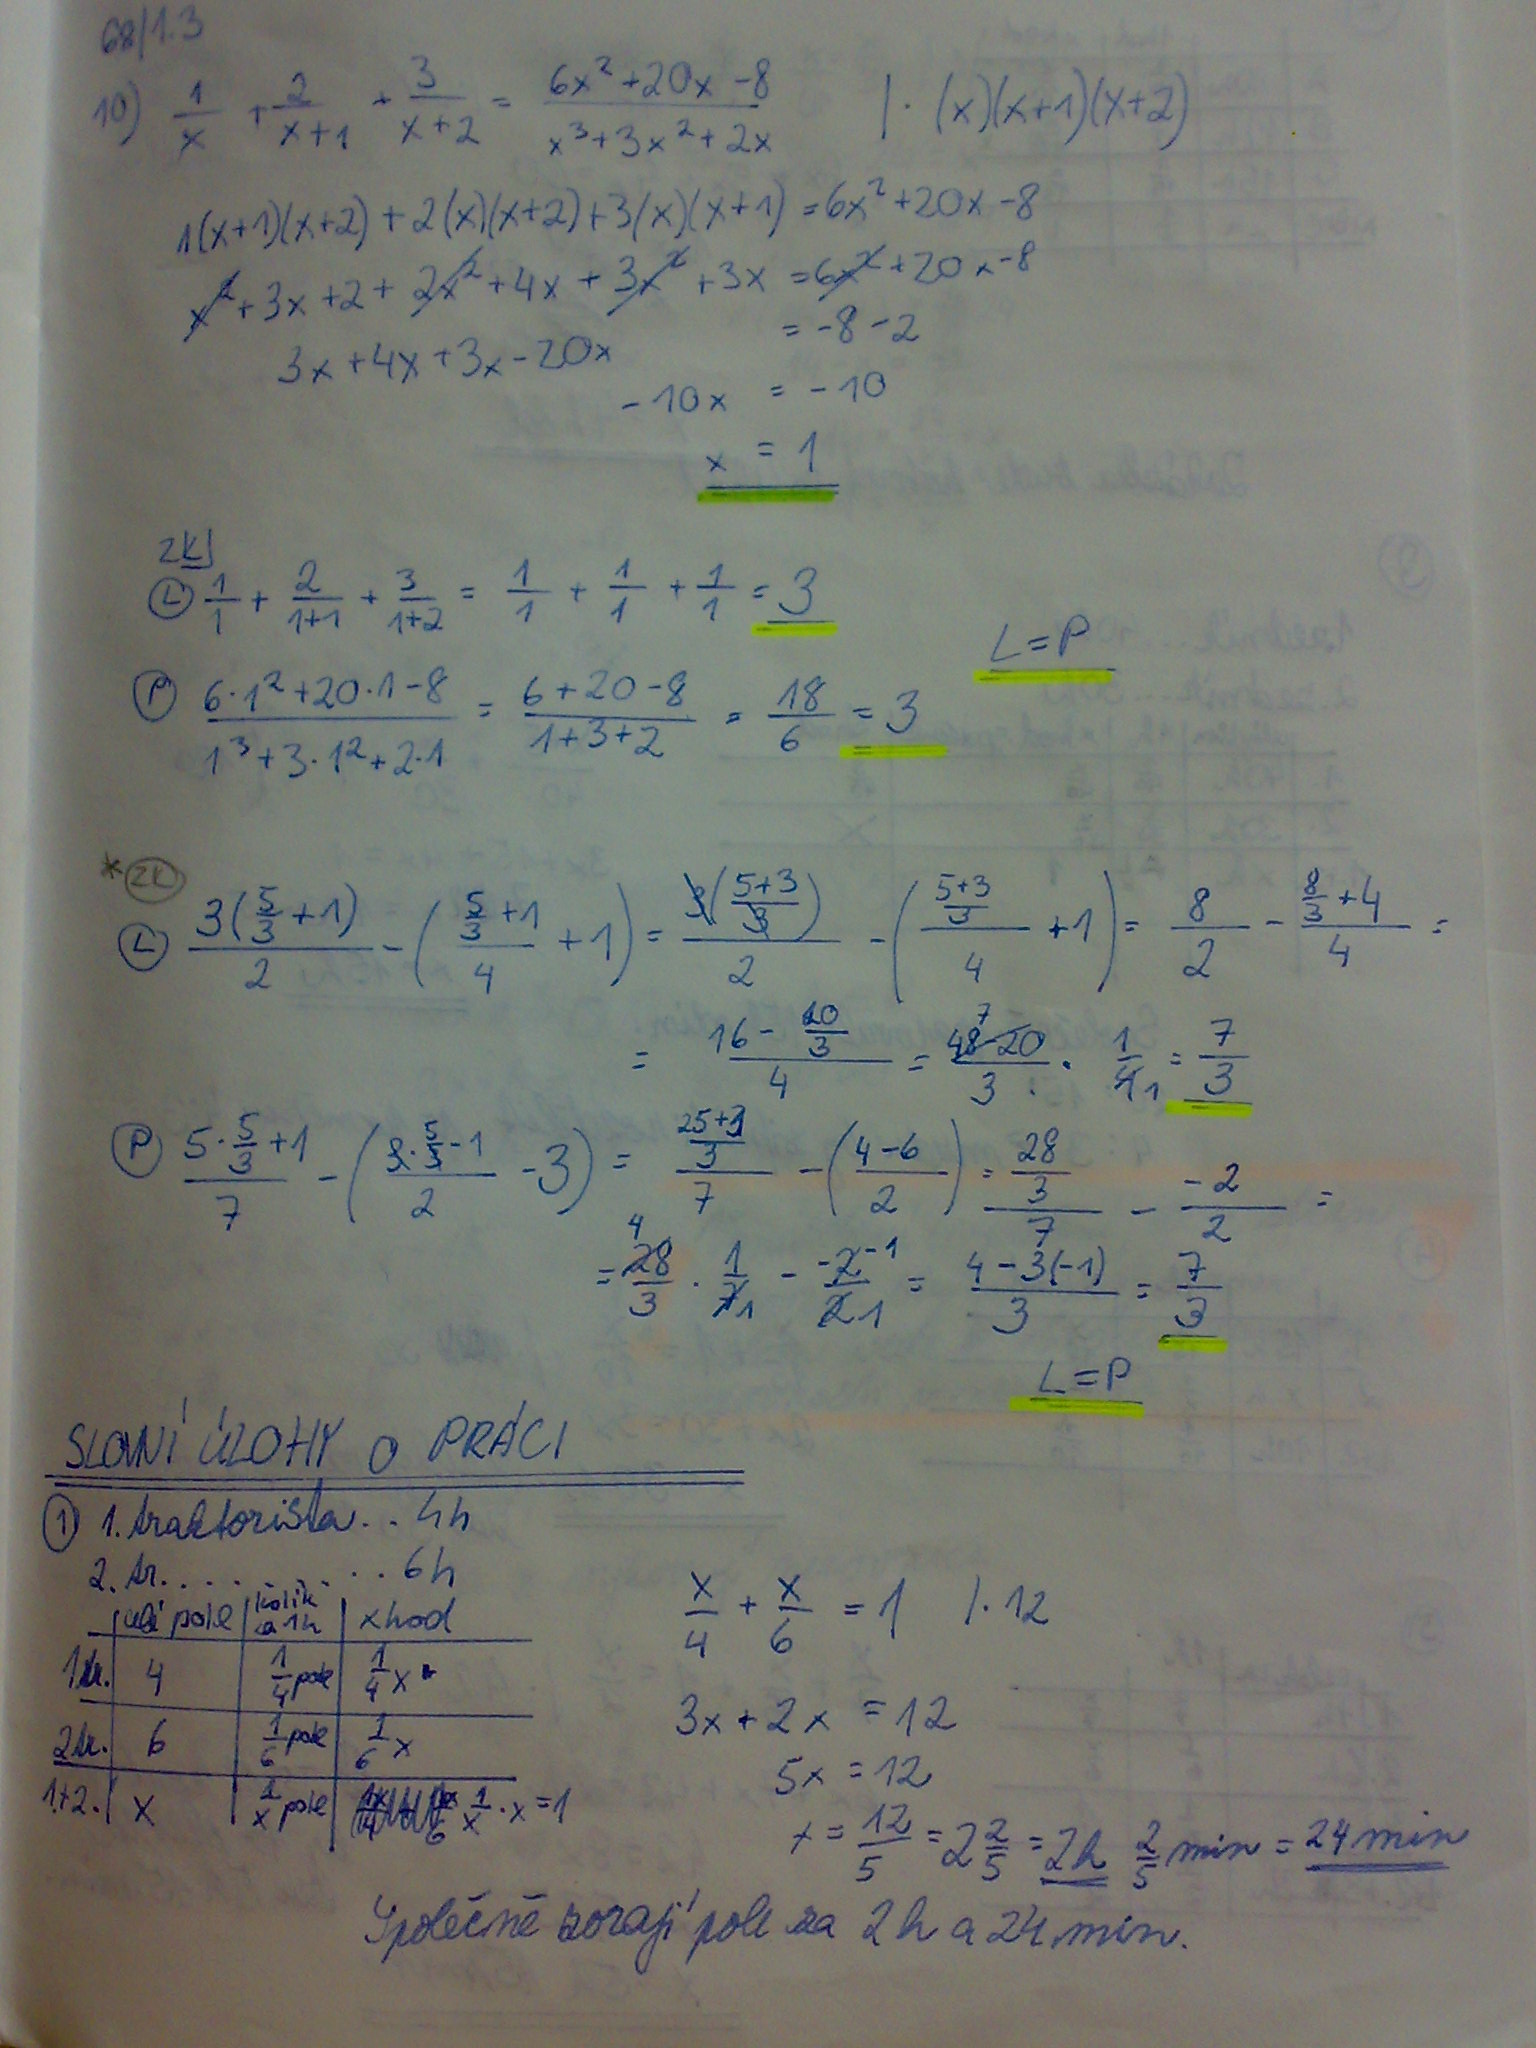 68/1.3
10) 1/x + 2/(x+1) + 3/(x+2) = (6x²+20x-8)/(x³+3x²+2x) | · (x)(x+1)(x+2)
1(x+1)(x+2) + 2(x)(x+2) + 3(x)(x+1) = 6x²+20x-8
x²+3x+2+2x²+4x+3x²+3x = 6x²+20x-8
3x+4x+3x-20x = -8-2
-10x = -10
x = 1
ZK
L 1/1 + 2/(1+1) + 3/(1+2) = 1/1 + 1/1 + 1/1 = 3
L=P
P (6·1²+20·1-8)/(1³+3·1²+2·1) = (6+20-8)/(1+3+2) = 18/6 = 3
* ZK
L 3(5/3+1)/2 - ((5/3+1)/4 + 1) = 3((5+3)/3)/2 - (((5+3)/3)/4 + 1) = 8/2 - (8/3+4)/4 =
= (16 - 20/3)/4 = (48-20)/3 7 · 1/4 1 = 7/3
P (5·5/3+1)/7 - ((3·5/3-1)/2 - 3) = ((25+3)/3)/7 - ((4-6)/2) = (28/3)/7 - (-2)/2 =
= 4 28/3 · 1/7 1 - -2/2 -1 1 = (4-3(-1))/3 = 7/3
L=P
SLOVNÍ ÚLOHY O PRÁCI
1 1. traktorista.. 4h
2. tr. . . . . . . . . 6h
celé pole | kolik za 1h | x hod
1tr. | 4 | 1/4 pole | 1/4 x
2tr. | 6 | 1/6 pole | 1/6 x
1+2. | x | 1/x pole | 1/x · x = 1
x/4 + x/6 = 1 /·12
3x+2x = 12
5x = 12
x = 12/5 = 2 2/5 = 2h 2/5 min = 24 min
Společně zorají pole za 2h a 24 min.